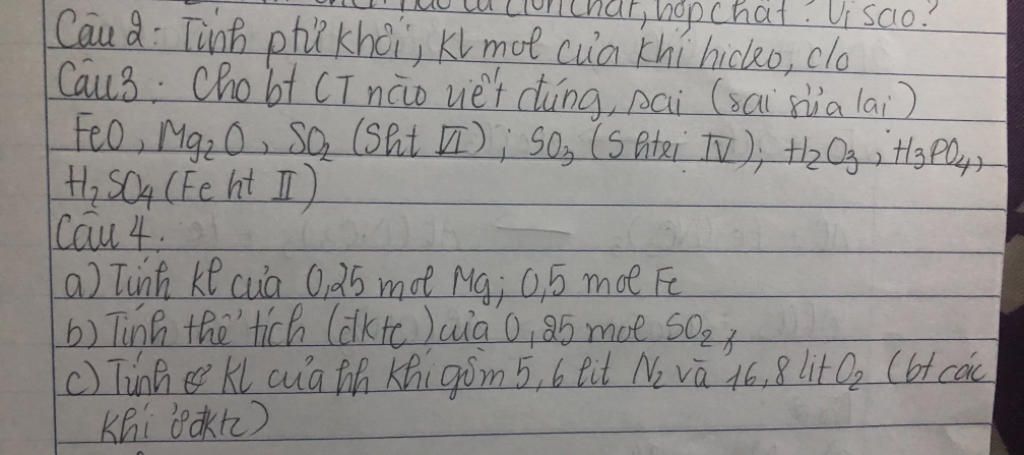 đơn chất, hợp chất? Vì sao?
Câu 2: Tính phtử khối, KL mol của khí hiđro, clo
Câu 3: Cho bt CT nào viết đúng, sai (sai sửa lại)
FeO, Mg₂O, SO₂ (S ht VI); SO₃ (S htrị IV); H₂O₃, H₃PO₄,
H₂SO₄ (Fe ht II)
Câu 4.
a) Tính kl của 0,25 mol Mg; 0,5 mol Fe
b) Tính thể tích (đktc) của 0,25 mol SO₂,
c) Tính KL của hh khí gồm 5,6 lit N₂ và 16,8 lit O₂ (bt các
khí ở đktc)